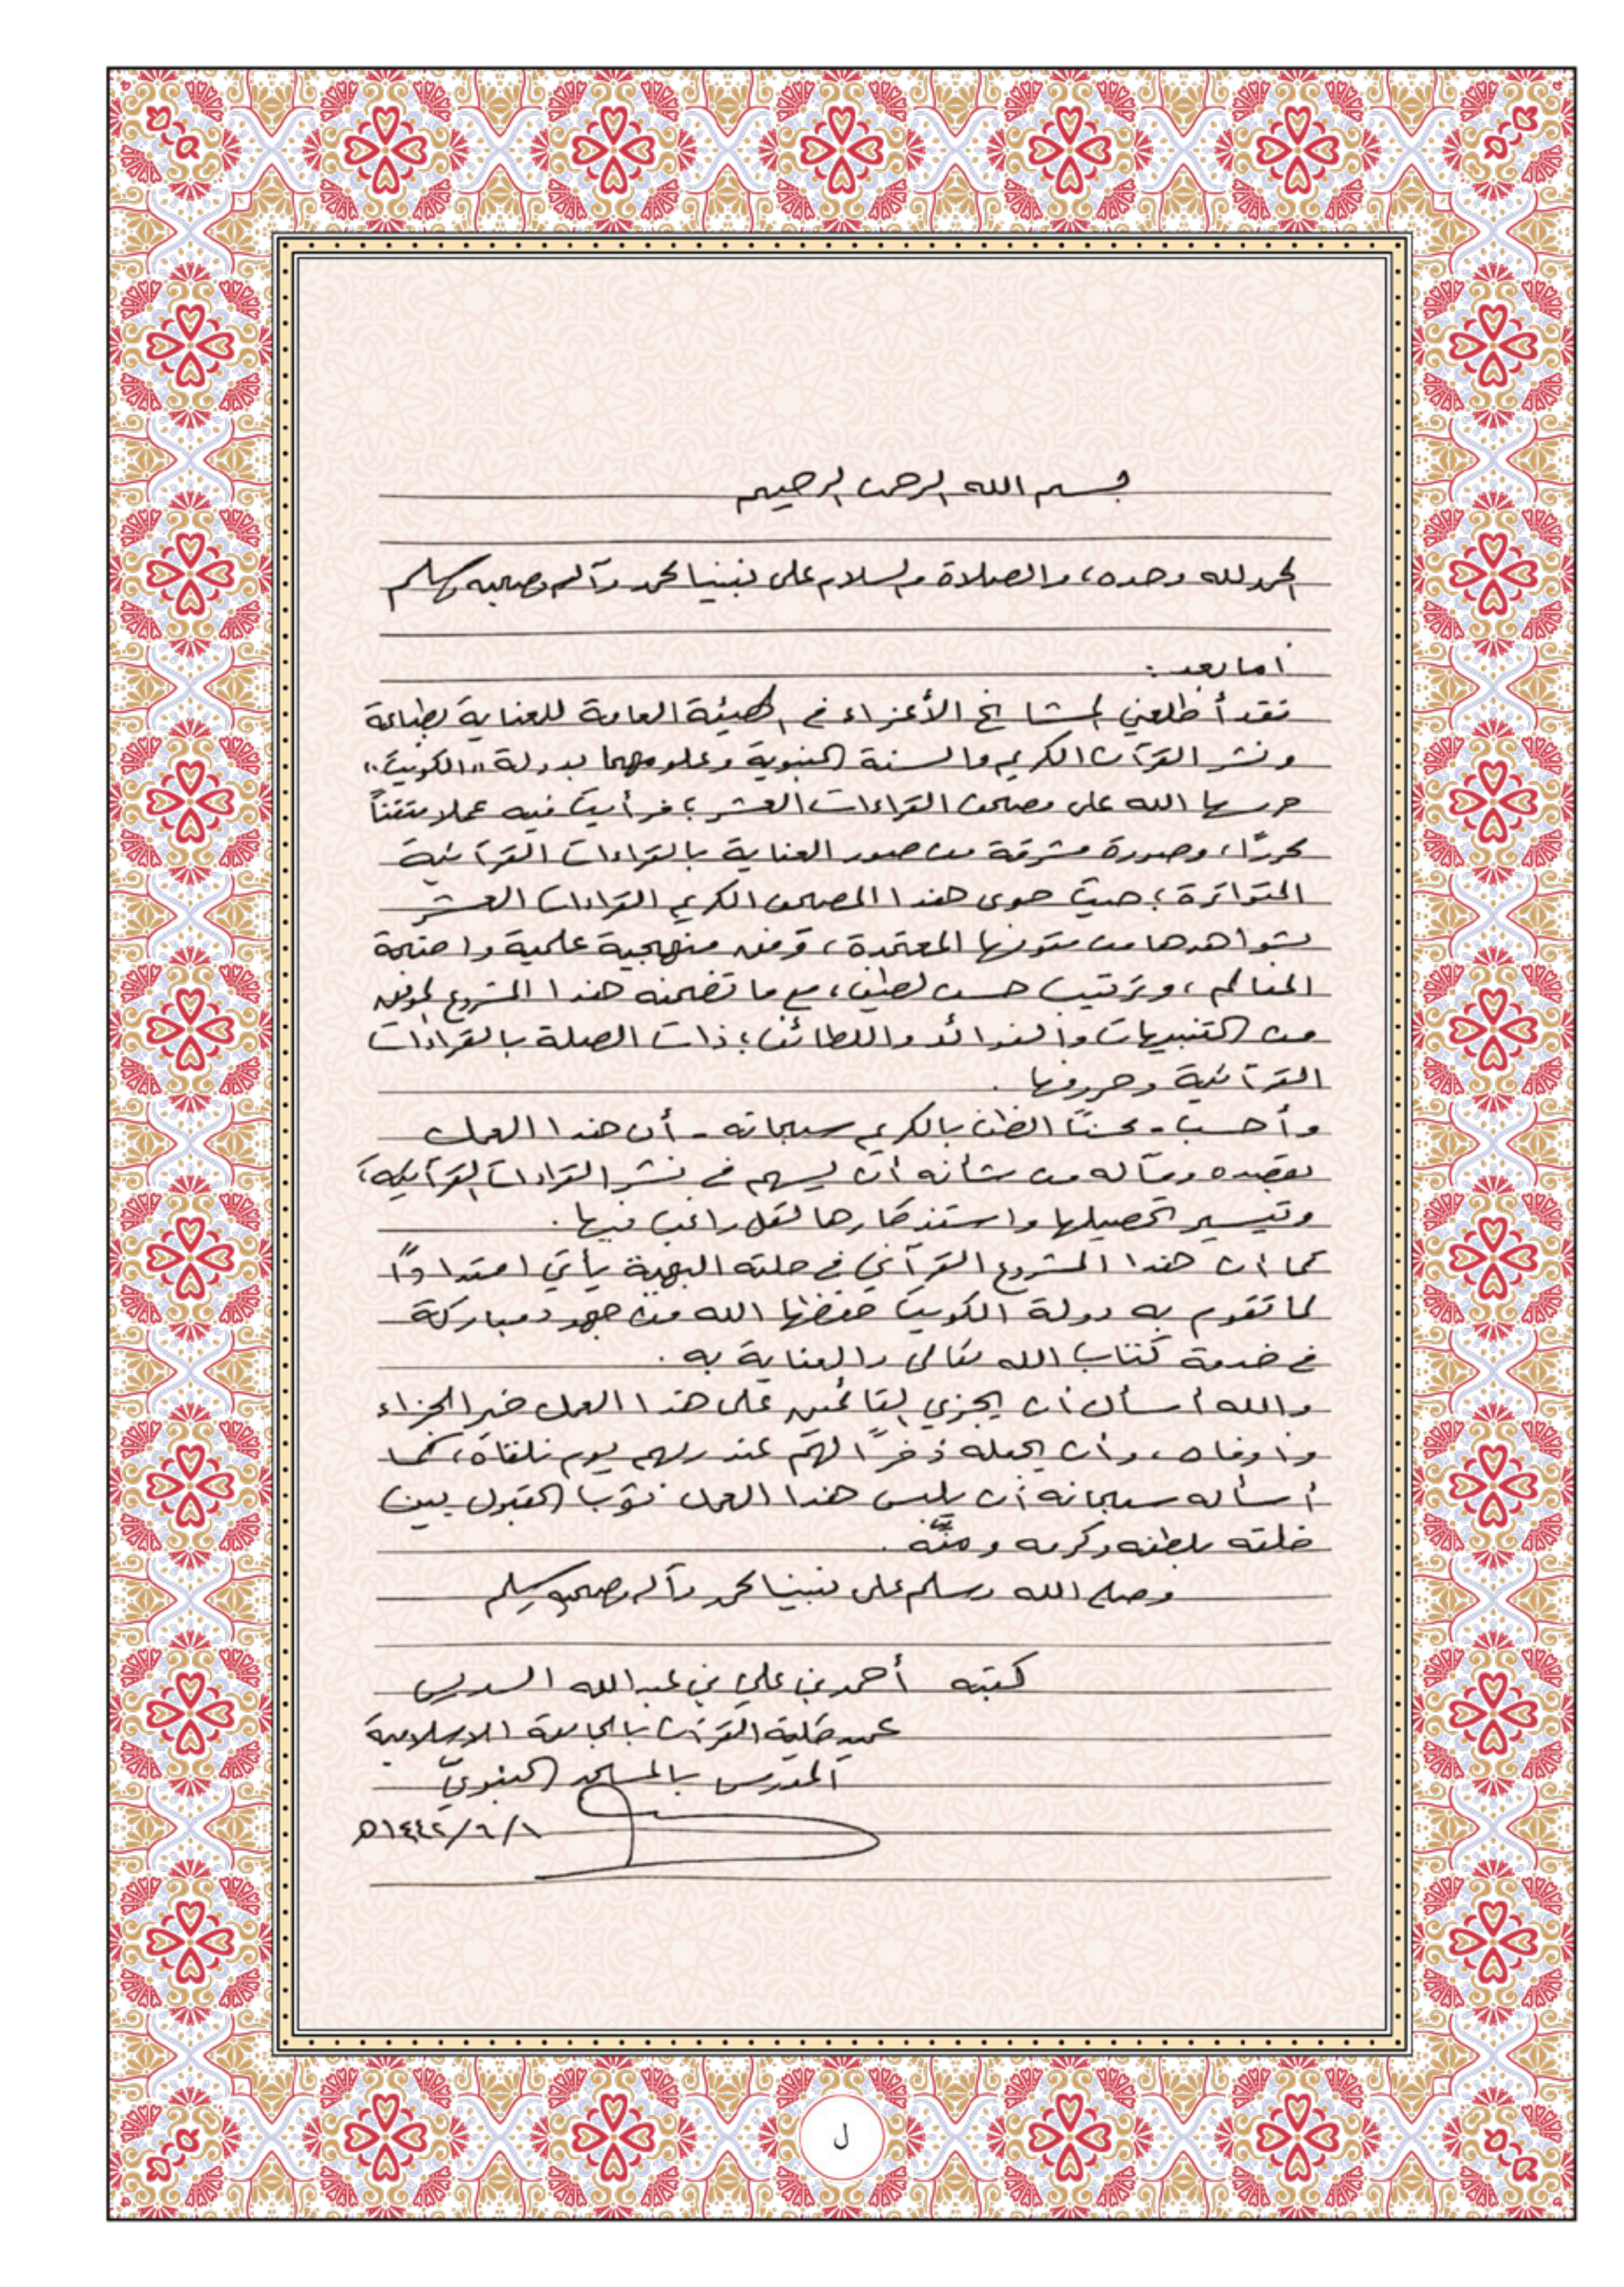 بسم الله الرحمن الرحيم
الحمد لله وحده، والصلاة والسلام على نبينا محمد وآله وصحبه وسلم
أما بعد :
فقد أطلعني المشايخ الأعزاء في الهيئة العامة للعناية بطباعة
ونشر القرآن الكريم والسنة النبوية وعلومهما بدولة «الكويت»
حرسها الله على مصحف القراءات العشر؛ فرأيت فيه عملا متقناً
محررًا، وصورة مشرقة من صور العناية بالقراءات القرآنية
المتواترة؛ حيث حوى هذا المصحف الكريم القراءات العشر
بشواهدها من متونها المعتمدة، وفق منهجية علمية واضحة
المعالم، وترتيب حسن لطيف، مع ما تضمنه هذا المشروع الموفق
من التنبيهات والفوائد واللطائف؛ ذات الصلة بالقراءات
القرآنية وحروفها .
وأحسب - محسنًا الظن بالكريم سبحانه - أن هذا العمل
بقصده ومآله من شأنه أن يسهم في نشر القراءات القرآنية،
وتيسير تحصيلها واستذكارها لكل راغب فيها .
كما أن هذا المشروع القرآني في حلته البهية يأتي امتدادًا
لما تقوم به دولة الكويت حفظها الله من جهود مباركة
في خدمة كتاب الله تعالى والعناية به .
والله أسأل أن يجزي القائمين على هذا العمل خير الجزاء
وأوفاه، وأن يجعله ذخرًا لهم عند ربهم يوم نلقاه، كما
أسأله سبحانه أن يلبس هذا العمل ثوب القبول بين
خلقه بلطفه وكرمه ومنّه .
وصلى الله وسلم على نبينا محمد وآله وصحبه وسلم
كتبه أحمد بن علي بن عبدالله السديس
عميد كلية القرآن بالجامعة الاسلامية
المدرس بالمسجد النبويّ
١/٦/١٤٤٢ه
ل